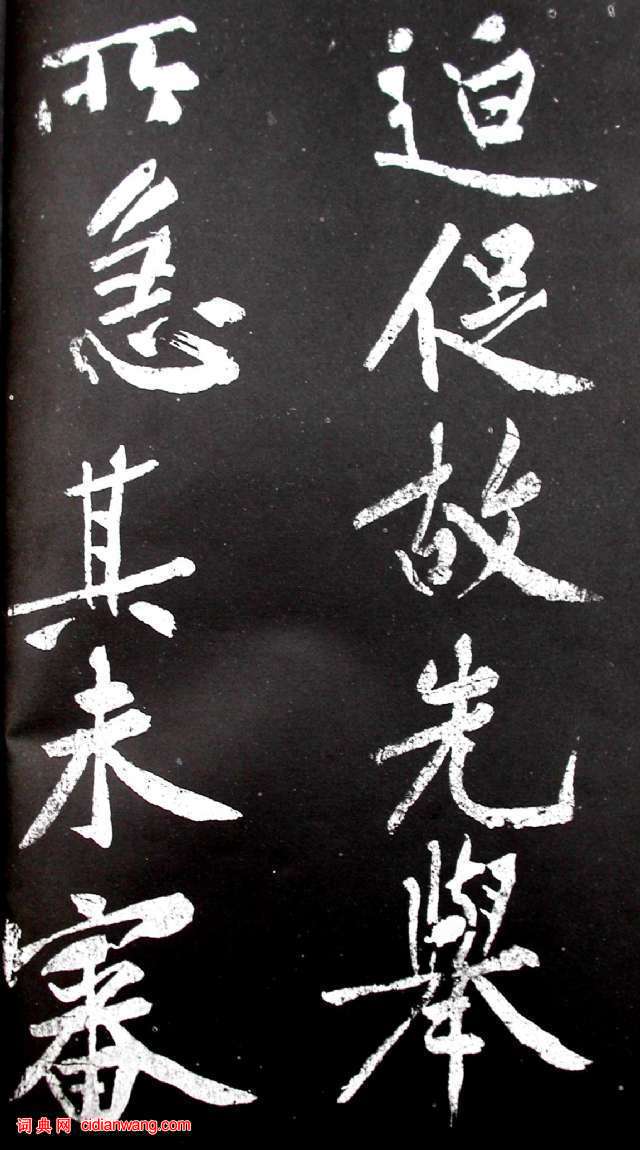 迫促故先舉
所急其未審
词典网 cidianwang.com